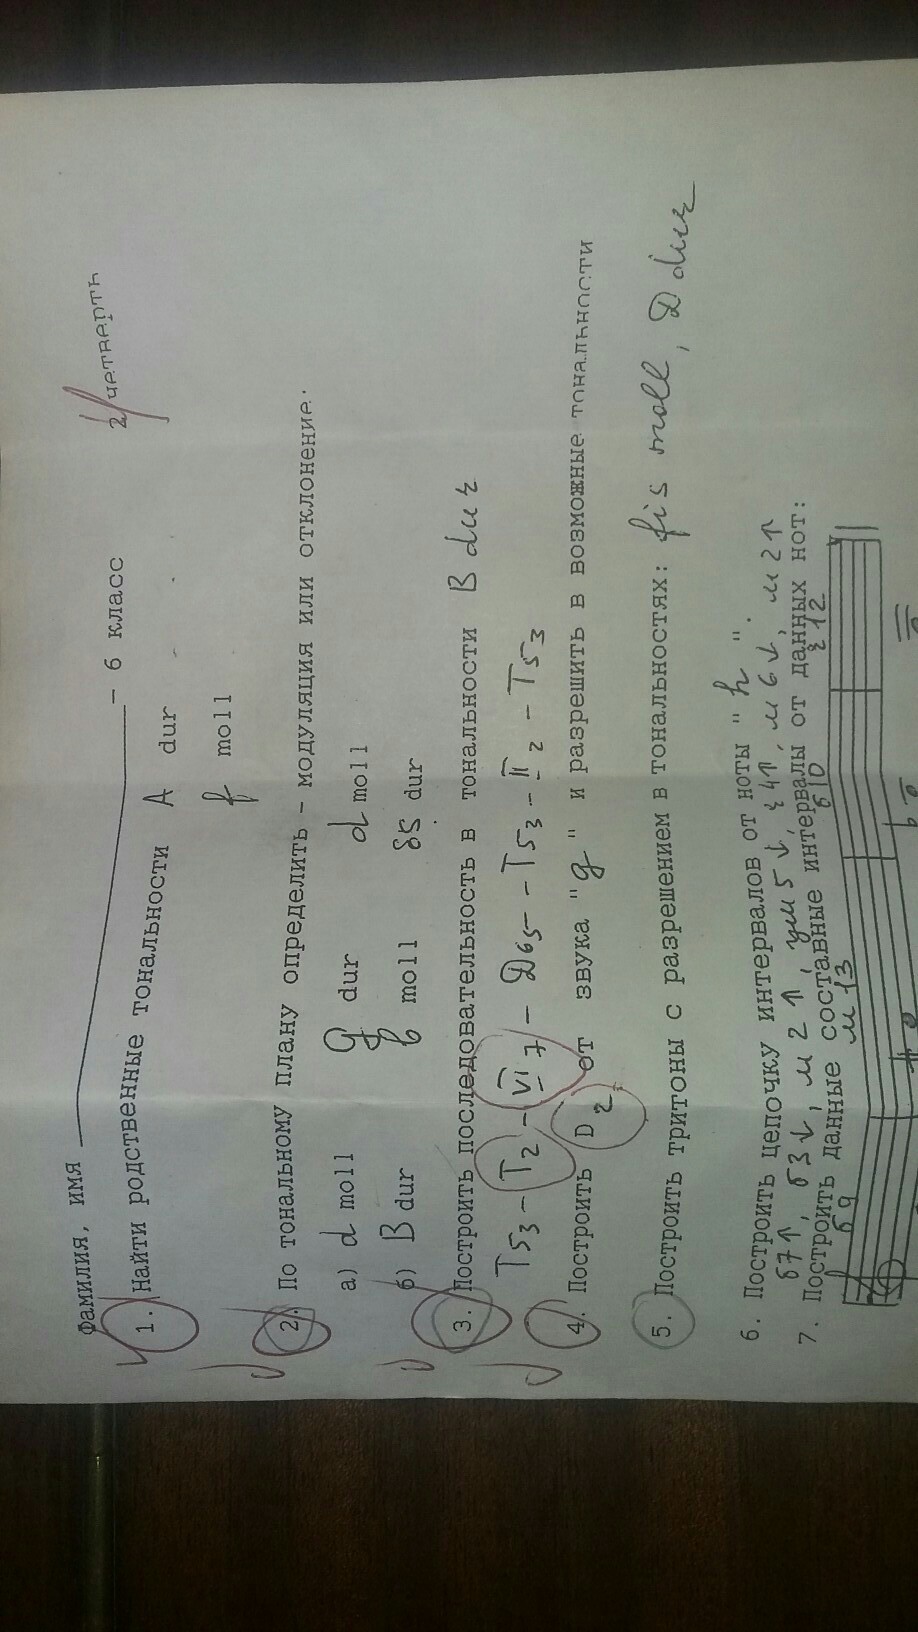 Фамилия, имя — 6 класс 2 четверть
1. Найти родственные тональности A dur
f moll
2. По тональному плану определить – модуляция или отклонение.
а) d moll g dur d moll
б) B dur b moll
3. Построить последовательность в тональности B dur
T53 – T2 – VI7 – D65 – T53 – II2 – T53
4. Построить D2 от звука "g" и разрешить в возможные тональности
5. Построить тритоны с разрешением в тональностях: fis moll, D dur
6. Построить цепочку интервалов от ноты "h".
б7↑, б3↓, м2↑, ум5↓, ч4↑, м6↓, м2↑
7. Построить данные составные интервалы от данных нот:
б9 м13 б10 ч12